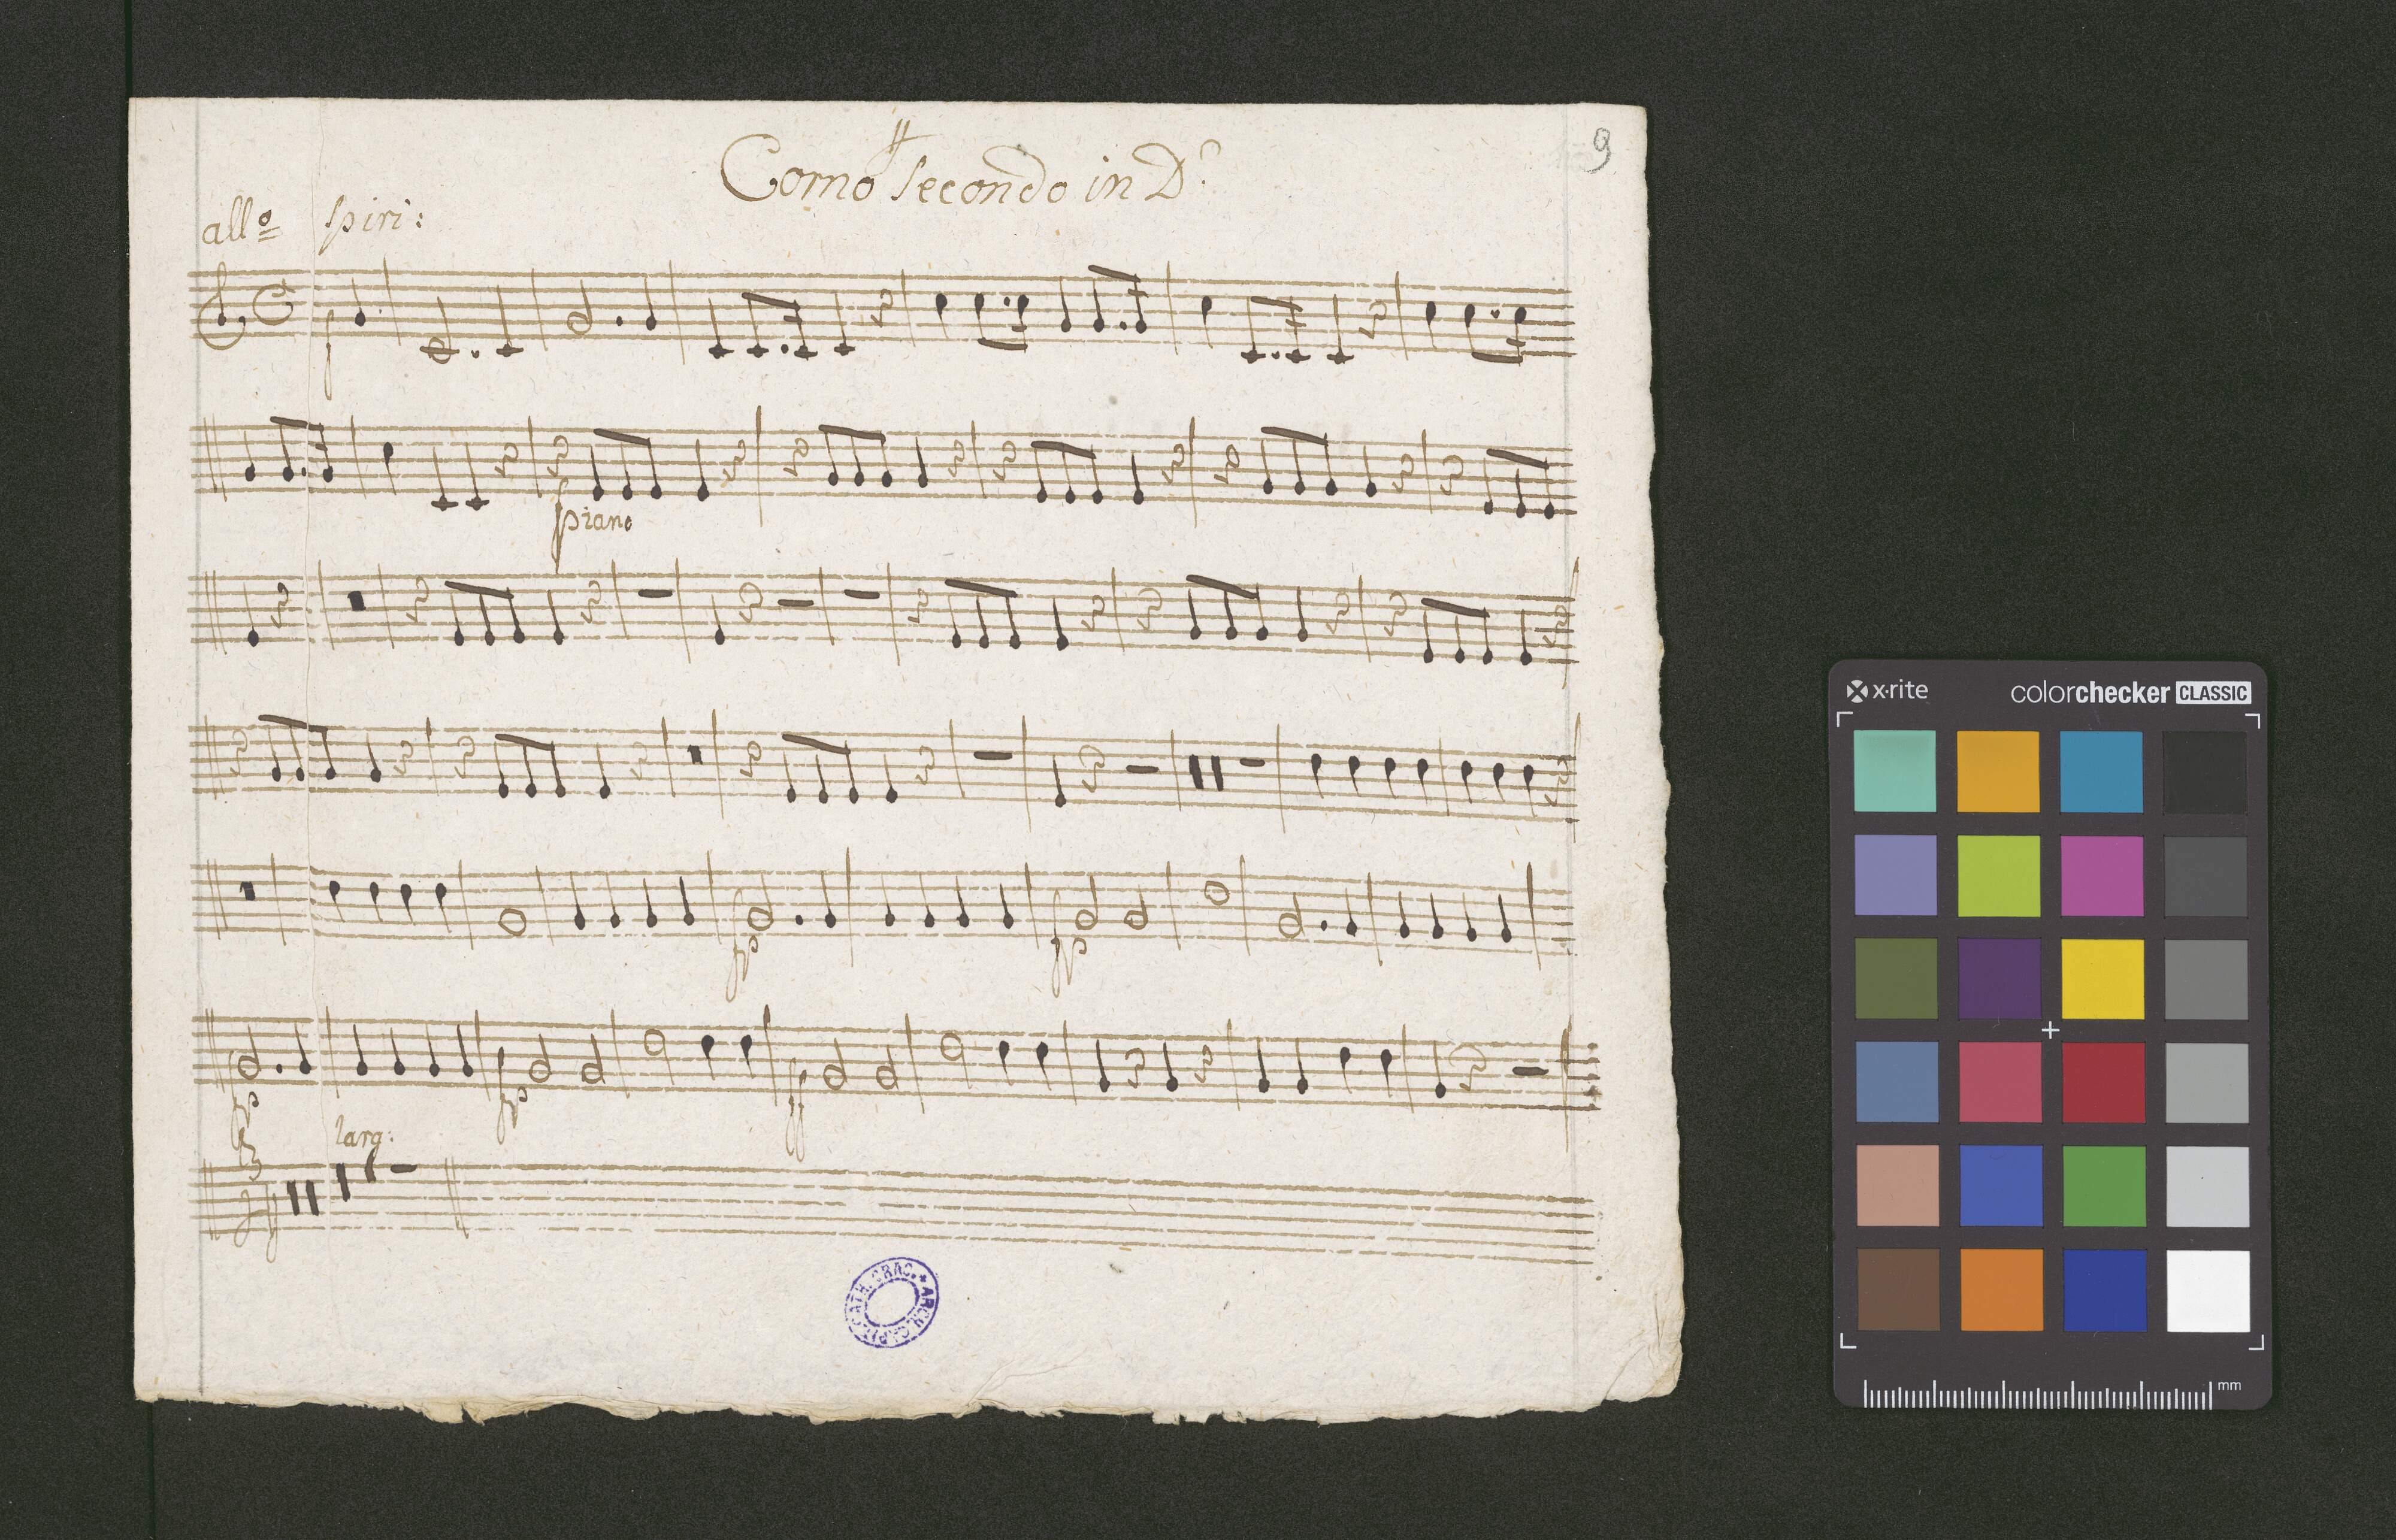 Corno secondo in D.
9
all.º spiri:
f
piano
fp
fp
fp
fp
ff
larg:
ARCH. CAPIT. CATH. CRAC.
x·rite
colorchecker CLASSIC
mm